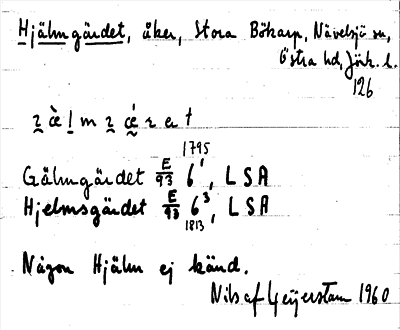 Hjälmgärdet, åker, Stora Bökarp, Nävelsjö sn,
Östra hd, Jönk. l.
126
1795
Gälmgärdet E/93 6¹, LSA
Hjelmsgärdet E/93 6³, LSA
1813
Någon Hjälm ej känd.
Nils af Geijerstam 1960